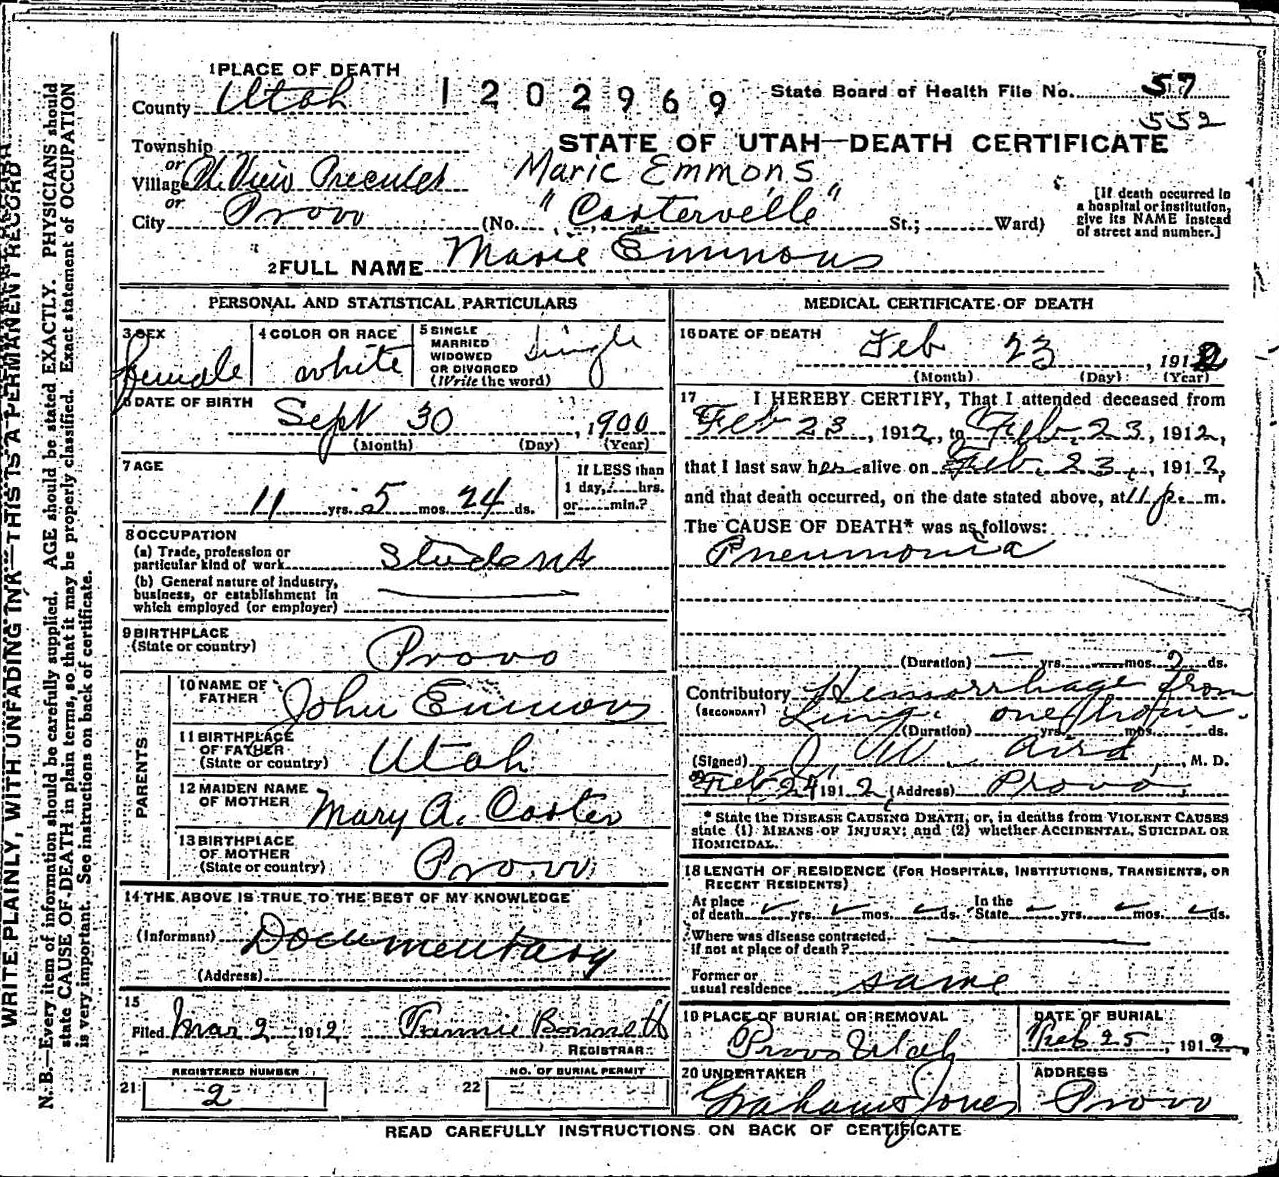 1 PLACE OF DEATH
County Utah
1202969
State Board of Health File No. 57
552
Township
or
Village View Precinct
or
City Provo
STATE OF UTAH—DEATH CERTIFICATE
Marie Emmons
(No. "Carterville" St.; Ward)
[If death occurred in
a hospital or institution,
give its NAME instead
of street and number.]
2 FULL NAME Marie Emmons
PERSONAL AND STATISTICAL PARTICULARS
3 SEX
female
4 COLOR OR RACE
white
5 SINGLE
MARRIED
WIDOWED
OR DIVORCED
(Write the word)
single
6 DATE OF BIRTH
Sept 30, 1900
(Month) (Day) (Year)
7 AGE
11 yrs. 5 mos. 24 ds.
If LESS than
1 day, hrs.
or min.?
8 OCCUPATION
(a) Trade, profession or
particular kind of work
Student
(b) General nature of industry,
business, or establishment in
which employed (or employer)
9 BIRTHPLACE
(State or country)
Provo
PARENTS
10 NAME OF
FATHER
John Emmons
11 BIRTHPLACE
OF FATHER
(State or country)
Utah
12 MAIDEN NAME
OF MOTHER
Mary A. Carter
13 BIRTHPLACE
OF MOTHER
(State or country)
Provo
14 THE ABOVE IS TRUE TO THE BEST OF MY KNOWLEDGE
(Informant) Documentary
(Address)
15
Filed Mar 2 1912
REGISTRAR
REGISTERED NUMBER
21 2
NO. OF BURIAL PERMIT
22
MEDICAL CERTIFICATE OF DEATH
16 DATE OF DEATH
Feb 23, 1912
(Month) (Day) (Year)
17 I HEREBY CERTIFY, That I attended deceased from
Feb 23, 1912, to Feb. 23, 1912,
that I last saw her alive on Feb. 23, 1912,
and that death occurred, on the date stated above, at 11 p. m.
The CAUSE OF DEATH* was as follows:
Pneumonia
(Duration) yrs. mos. 2 ds.
Contributory Hemorrhage from
(SECONDARY) Lung. one hour.
(Duration) yrs. mos. ds.
(Signed) J. W. Aird, M. D.
Feb 24 1912 (Address) Provo
* State the DISEASE CAUSING DEATH; or, in deaths from VIOLENT CAUSES
state (1) MEANS OF INJURY; and (2) whether ACCIDENTAL, SUICIDAL OR
HOMICIDAL.
18 LENGTH OF RESIDENCE (FOR HOSPITALS, INSTITUTIONS, TRANSIENTS, OR
RECENT RESIDENTS)
At place
of death yrs. mos. ds.
In the
State yrs. mos. ds.
Where was disease contracted
if not at place of death?
Former or
usual residence same
19 PLACE OF BURIAL OR REMOVAL
Provo Utah
DATE OF BURIAL
Feb 25, 1912
20 UNDERTAKER
Graham & Jones
ADDRESS
Provo
READ CAREFULLY INSTRUCTIONS ON BACK OF CERTIFICATE
WRITE PLAINLY, WITH UNFADING INK—THIS IS A PERMANENT RECORD
N.B.—Every item of information should be carefully supplied. AGE should be stated EXACTLY. PHYSICIANS should
state CAUSE OF DEATH in plain terms, so that it may be properly classified. Exact statement of OCCUPATION
is very important. See instructions on back of certificate.